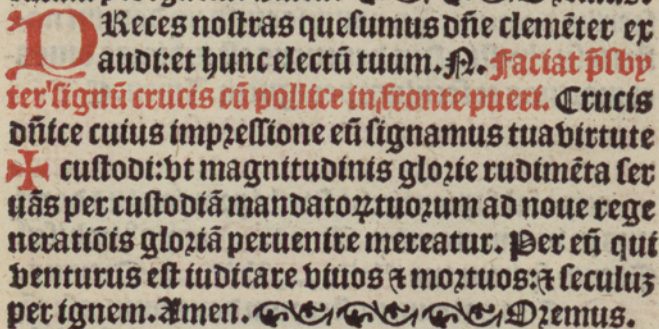 PReces nostras quesumus dñe clemẽter ex
audi: et hunc electũ tuum. N. Faciat p̃sby
ter' signũ crucis cũ pollice in fronte pueri. Crucis
dñice cuius impꝛessione eũ signamus tua virtute
✠ custodi: vt magnitudinis gloꝛie rudimẽta ser
uãs per custodiã mandatoꝝ tuoꝛum ad noue rege
neratiõis gloꝛiã peruenire mereatur. Per eũ qui
venturus est iudicare viuos ⁊ moꝛtuos: ⁊ seculuꝫ
per ignem. Amen. Oꝛemus.